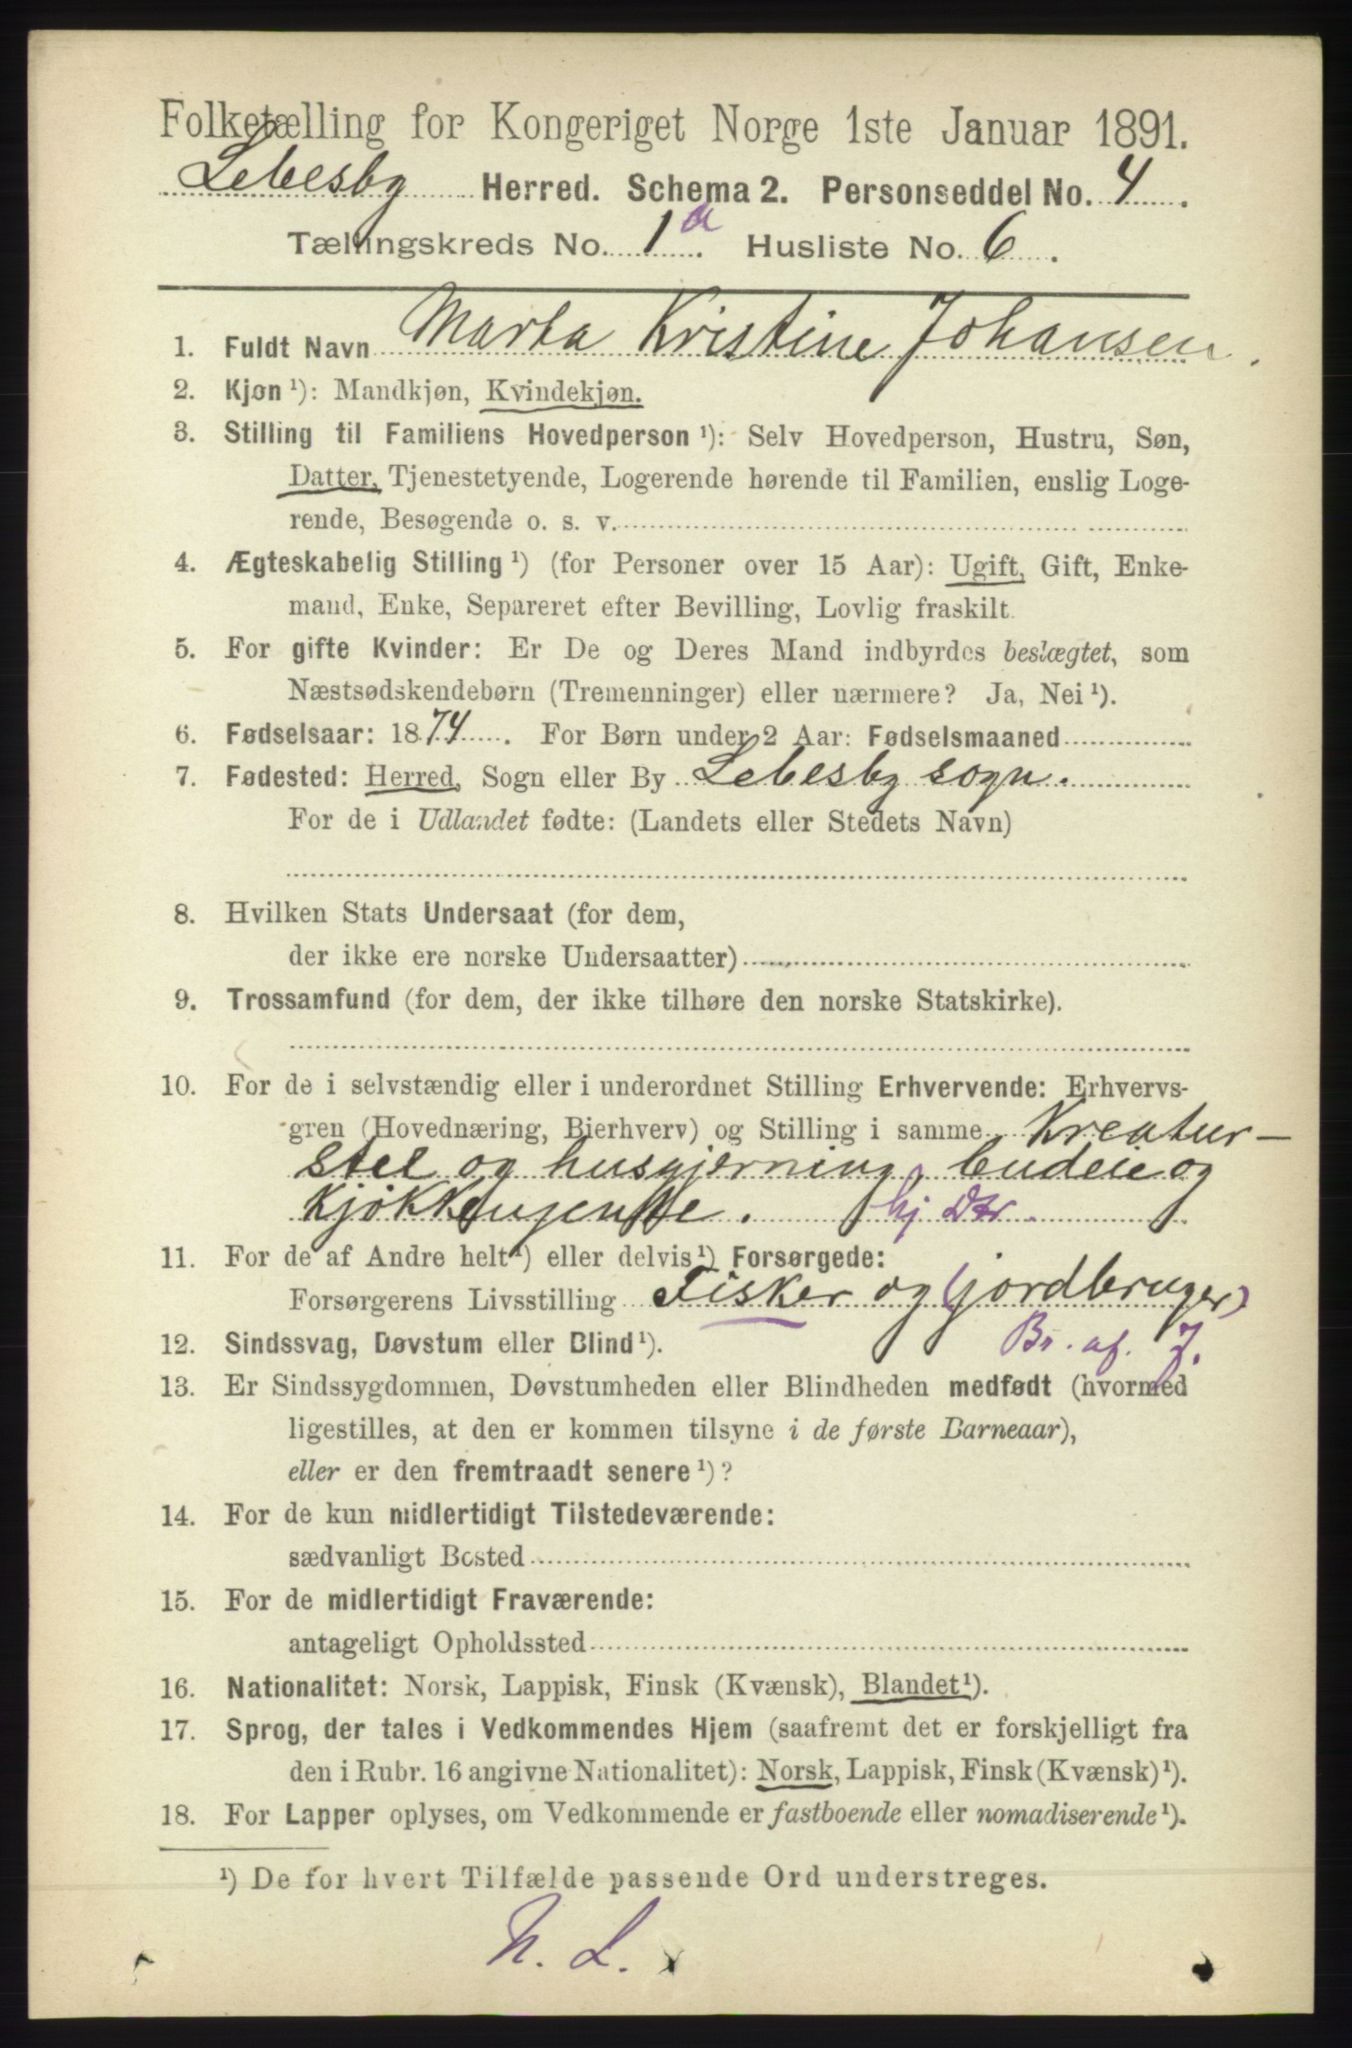 Folketælling for Kongeriget Norge 1ste Januar 1891.
Lebesby Herred. Schema 2. Personseddel No. 4.
Tællingskreds No. 1a. Husliste No. 6.
1. Fuldt Navn Marta Kristine Johansen.
2. Kjøn ¹): Mandkjøn, Kvindekjøn.
3. Stilling til Familiens Hovedperson ¹): Selv Hovedperson, Hustru, Søn,
Datter, Tjenestetyende, Logerende hørende til Familien, enslig Loge-
rende, Besøgende o. s. v.
4. Ægteskabelig Stilling ¹) (for Personer over 15 Aar): Ugift, Gift, Enke-
mand, Enke, Separeret efter Bevilling, Lovlig fraskilt.
5. For gifte Kvinder: Er De og Deres Mand indbyrdes beslægtet, som
Næstsødskendebørn (Tremenninger) eller nærmere? Ja, Nei ¹).
6. Fødselsaar: 1874. For Børn under 2 Aar: Fødselsmaaned
7. Fødested: Herred, Sogn eller By Lebesby sogn.
For de i Udlandet fødte: (Landets eller Stedets Navn)
8. Hvilken Stats Undersaat (for dem,
der ikke ere norske Undersaatter)
9. Trossamfund (for dem, der ikke tilhøre den norske Statskirke).
10. For de i selvstændig eller i underordnet Stilling Erhvervende: Erhvervs-
gren (Hovednæring, Bierhverv) og Stilling i samme Kreatur-
stel og husgjerning, budeie og
kjøkkenjente. hj Dtr.
11. For de af Andre helt ¹) eller delvis ¹) Forsørgede:
Forsørgerens Livsstilling Fisker og (jordbruger)
12. Sindssvag, Døvstum eller Blind ¹). Br. af. J.
13. Er Sindssygdommen, Døvstumheden eller Blindheden medfødt (hvormed
ligestilles, at den er kommen tilsyne i de første Barneaar),
eller er den fremtraadt senere ¹)?
14. For de kun midlertidigt Tilstedeværende:
sædvanligt Bosted
15. For de midlertidigt Fraværende:
antageligt Opholdssted
16. Nationalitet: Norsk, Lappisk, Finsk (Kvænsk), Blandet ¹).
17. Sprog, der tales i Vedkommendes Hjem (saafremt det er forskjelligt fra
den i Rubr. 16 angivne Nationalitet): Norsk, Lappisk, Finsk (Kvænsk) ¹).
18. For Lapper oplyses, om Vedkommende er fastboende eller nomadiserende ¹).
¹) De for hvert Tilfælde passende Ord understreges.
N. L.